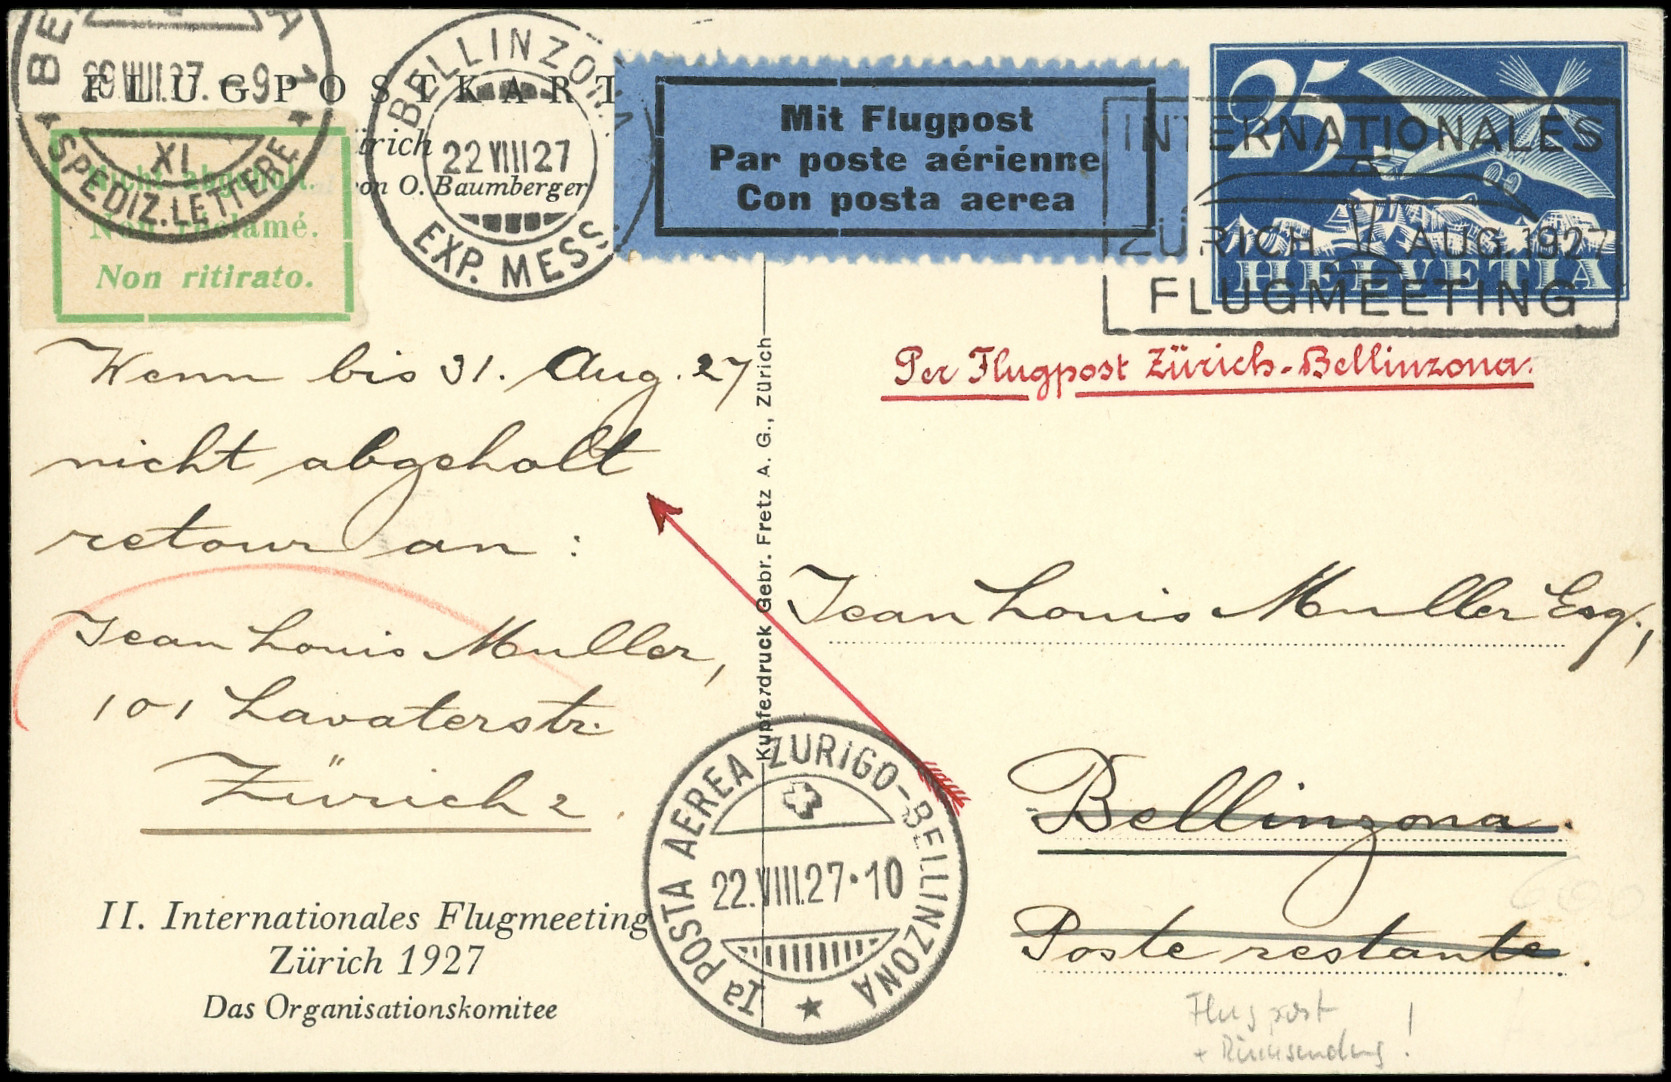 FLUGPOSTKART
ürich
on O. Baumberger
BELLINZONA
22 VIII 27
EXP. MESS
29 VIII 27. - 9
XI
SPEDIZ. LETTERE
Nicht abgeholt.
Non réclamé.
Non ritirato.
Mit Flugpost
Par poste aérienne
Con posta aerea
25
HELVETIA
INTERNATIONALES
ZÜRICH AUG. 1927
FLUGMEETING
Per Flugpost Zürich-Bellinzona.
Wenn bis 31. Aug. 27
nicht abgeholt
retour an :
Jean Louis Muller,
101 Lavaterstr.
Zürich 2.
II. Internationales Flugmeeting
Zürich 1927
Das Organisationskomitee
Kupferdruck Gebr. Fretz A. G., Zürich
Ia POSTA AEREA ZURIGO-BELLINZONA
22.VIII.27·10
Jean Louis Muller Esq.,
Bellinzona.
Poste restante.
Flugpost
+ Rücksendung!